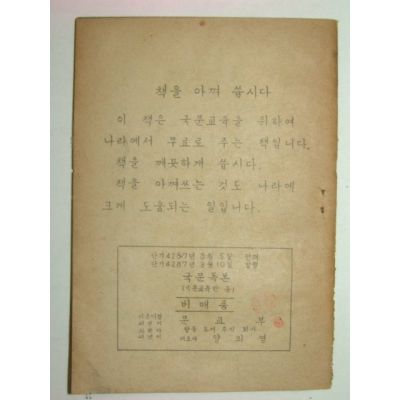 책을 아껴 씁시다
이 책은 국문교육을 위하여
나라에서 무료로 주는 책입니다.
책을 깨끗하게 씁시다.
책을 아껴쓰는 것도 나라에
크게 도움되는 일입니다.
단기 4287년 3월 5일 인쇄
단기 4287년 3월 10일 발행
국문독본
비매품
문교부
대표자 양의영